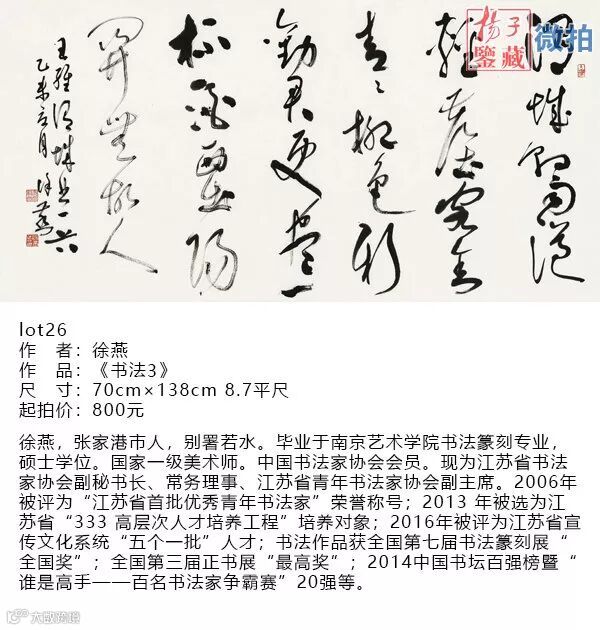 渭城朝雨浥
輕塵客舍
青青柳色新
勸君更盡一
杯酒西出陽
關無故人
王維渭城曲一首
乙未月徐燕
揚子
鑒藏
微拍
lot26
作 者：徐燕
作 品：《书法3》
尺 寸：70cm×138cm 8.7平尺
起拍价：800元
徐燕，张家港市人，别署若水。毕业于南京艺术学院书法篆刻专业，
硕士学位。国家一级美术师。中国书法家协会会员。现为江苏省书法
家协会副秘书长、常务理事、江苏省青年书法家协会副主席。2006年
被评为“江苏省首批优秀青年书法家”荣誉称号；2013 年被选为江
苏省“333 高层次人才培养工程”培养对象；2016年被评为江苏省宣
传文化系统“五个一批”人才；书法作品获全国第七届书法篆刻展“
全国奖”；全国第三届正书展“最高奖”；2014中国书坛百强榜暨“
谁是高手——百名书法家争霸赛”20强等。
大数跨境